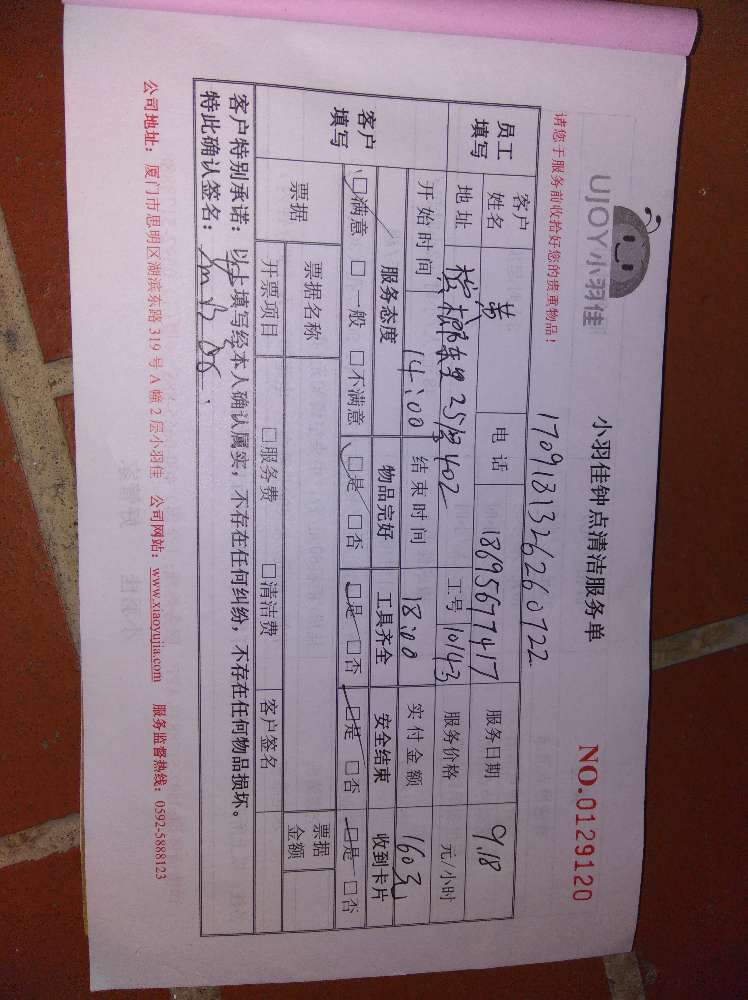 UJOY小羽佳
小羽佳钟点清洁服务单
NO.0129120
请您于服务前收拾好您的贵重物品！
1709131326260722
员工填写
客户姓名 黄 电话 18695677417 服务日期 9.18
地址 槟榔东里25号402 工号 10143 服务价格 元/小时
开始时间 14:00 结束时间 18:00 实付金额 160元
客户填写
服务态度 物品完好 工具齐全 安全结束 收到卡片
□满意 □一般 □不满意 □是 □否 □是 □否 □是 □否 □是 □否
票据 票据名称 票据金额
开票项目 □服务费 □清洁费 客户签名
客户特别承诺：以上填写经本人确认属实，不存在任何纠纷，不存在任何物品损坏。
特此确认签名：
公司地址：厦门市思明区湖滨东路319号A幢2层小羽佳 公司网站：www.xiaoyujia.com 服务监督热线：0592-5888123